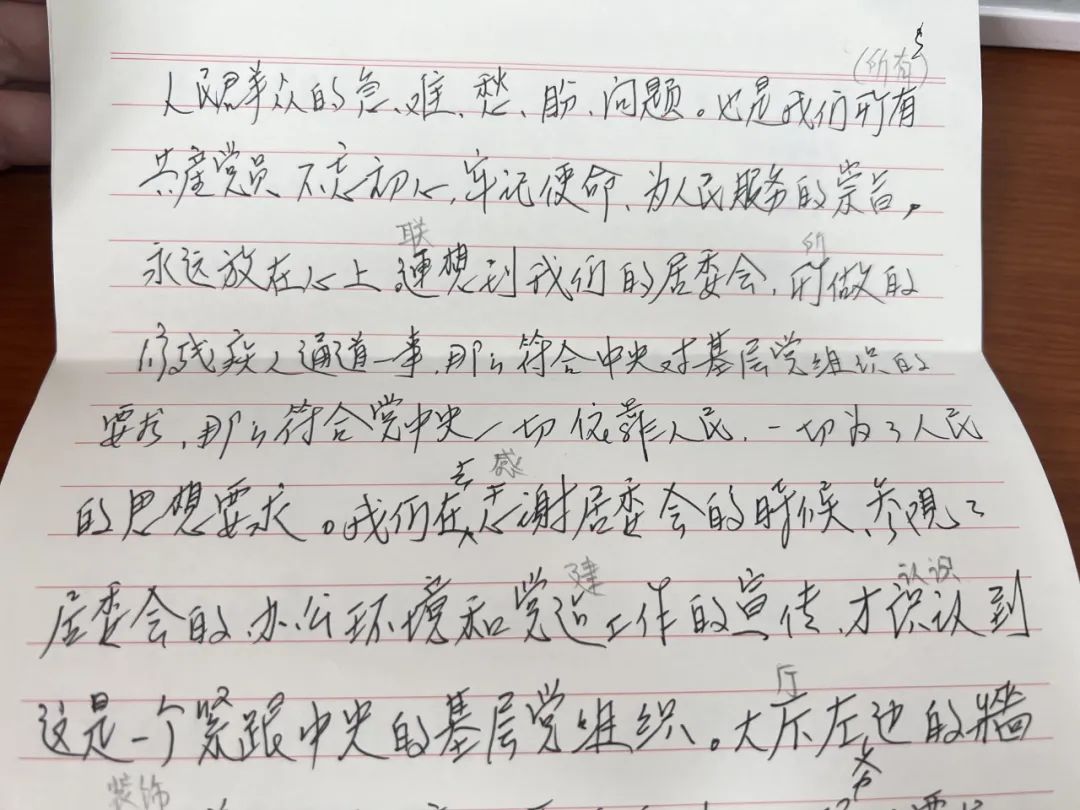 (所有)
人民君羊众的急、难、愁、盼、问题。也是我们所有
共產党员不忘初心,牢记使命、为人民服务的崇旨,
联 所
永远放在心上連想到我们的居委会,所做的
修残疾人通道一事,那么符合中央对基层党组织的
要求,那么符合党中央一切依靠人民,一切为了人民
去 感
的思想要求。我们在志谢居委会的時候、参观了
建 认识
居委会的办公环境和党建工作的宣传,才识认到
厅
这是一个紧跟中央的基层党组织。大厅左边的墙
装饰